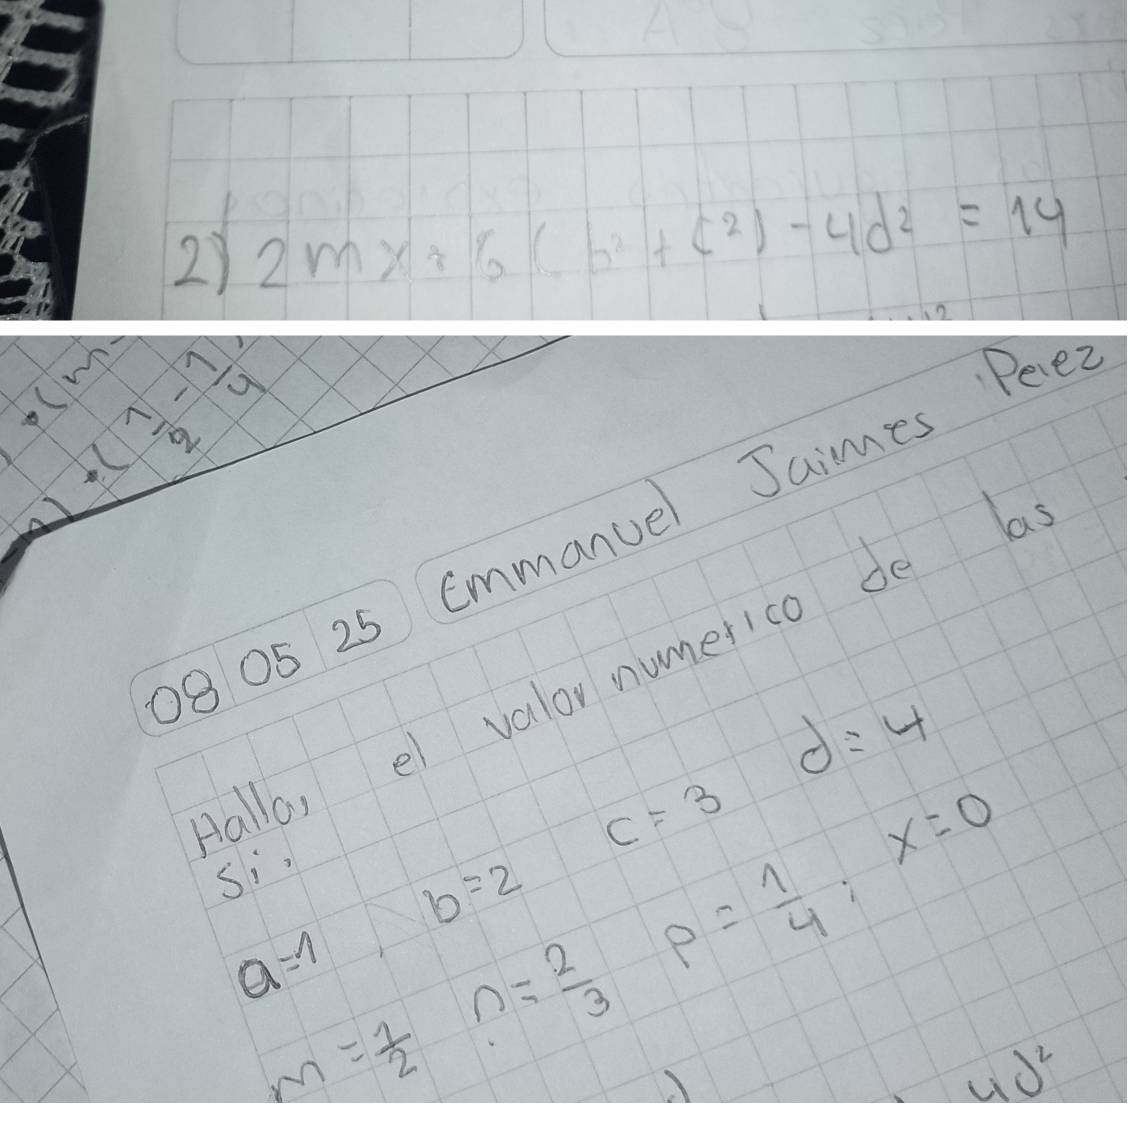 2) 2mx + 6(b² + c²) - 4d² = 14
1/2 - 1/4
Emmanuel Jaimes Perez
08 05 25
Hallar el valor numerico de las
Si:
a=1, b=2 c=3 d=4
m=1/2 n=2/3 p=1/4; x=0
4d²